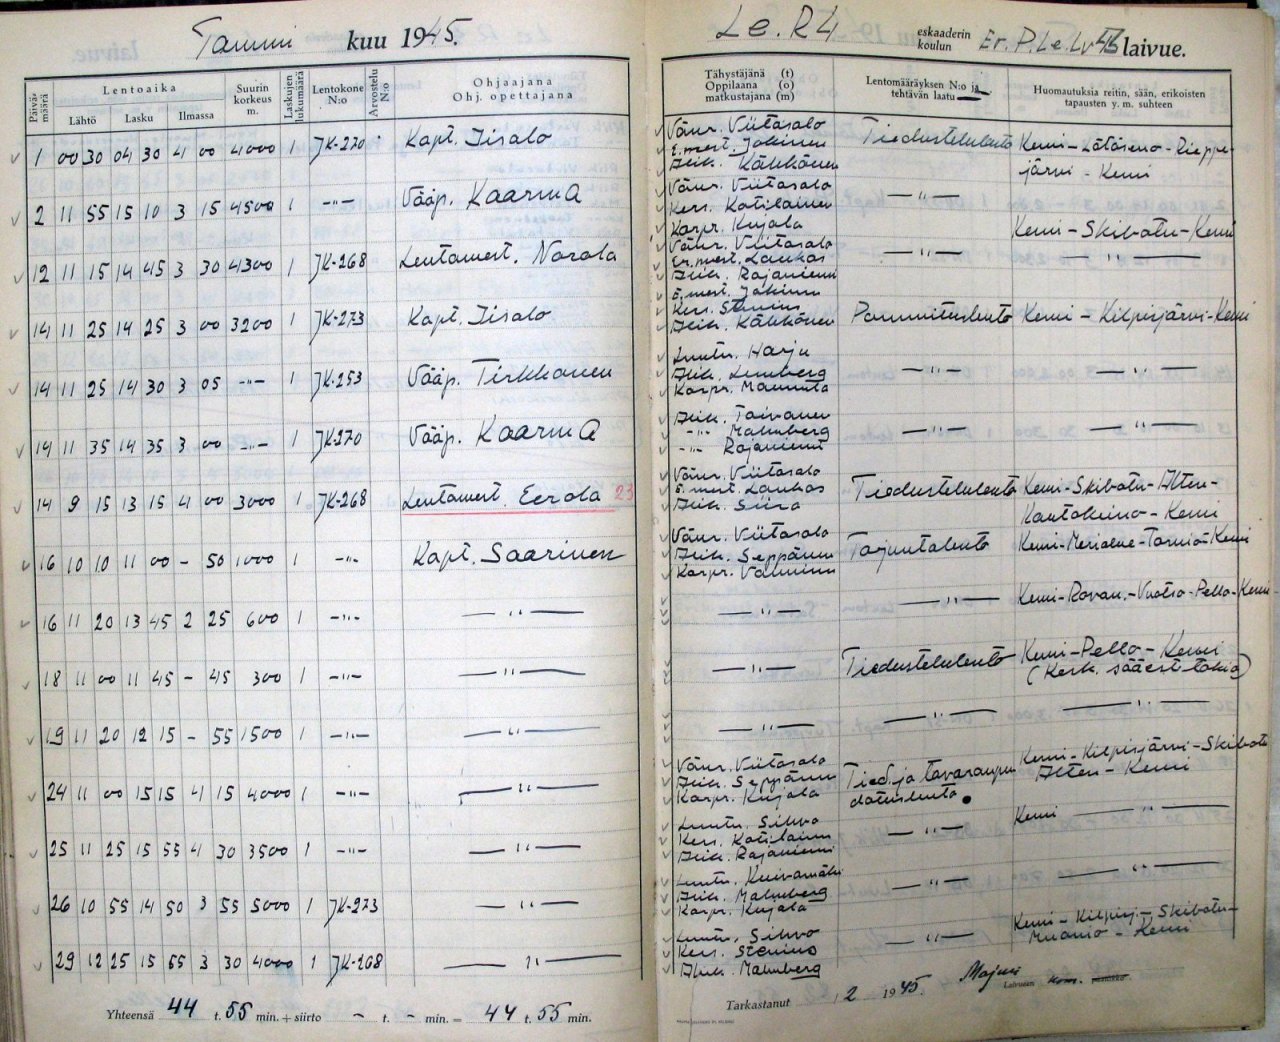 Tammi kuu 1945.
Le. R4 eskaaderin koulun Er. P. Le. Lv 45 laivue.
Päivämäärä
Lentoaika
Lähtö Lasku Ilmassa
Suurin korkeus m.
Laskujen lukumäärä
Lentokone N:o
Arvostelu N:o
Ohjaajana
Ohj. opettajana
Tähystäjänä (t)
Oppilaana (o)
matkustajana (m)
Lentomääräyksen N:o ja
tehtävän laatu
Huomautuksia reitin, sään, erikoisten
tapausten y. m. suhteen
1 00 30 04 30 4 00 4000 1 JK-270 Kapt. Iisalo
Vänr. Viitasalo
E.mest. Jokinen
Alik. Kähkönen
Tiedustelulento
Kemi-Lätäseno-Rieppe-
järvi - Kemi
2 11 55 15 10 3 15 4500 1 -"- Vääp. Kaarma
Vänr. Viitasalo
Kers. Kotilainen
Korpr. Kujala
-"-
Kemi-Skibotn-Kemi
12 11 15 14 45 3 30 4300 1 JK-268 Lentomest. Norola
Vänr. Viitasalo
Er.mest. Laukas
Alik. Rajaniemi
-"-
"
14 11 25 14 25 3 00 3200 1 JK-273 Kapt. Iisalo
E.mest. Jokinen
Kers. Stenius
Alik. Kähkönen
Pommituslento
Kemi - Kilpisjärvi-Kemi
14 11 25 14 30 3 05 -"- 1 JK-253 Vääp. Tirkkonen
Luutn. Harju
Alik. Lemberg
Korpr. Mannila
-"-
-"-
14 11 35 14 35 3 00 -"- 1 JK-270 Vääp. Kaarma
Alik. Toivanen
-"- Malmberg
-"- Rajaniemi
-"-
-"-
14 9 15 13 15 4 00 3000 1 JK-268 Lentomest. Eerola 23
Vänr. Viitasalo
E.mest. Laukas
Alik. Siira
Tiedustelulento
Kemi-Skibotn-Alten-
Kautokeino - Kemi
16 10 10 11 00 - 50 1000 1 -"- Kapt. Saarinen
Vänr. Viitasalo
Alik. Seppänen
Korpr. Valminen
Torjuntalento
Kemi-Merialue-Tornio-Kemi
16 11 20 13 45 2 25 600 1 -"- -"-
-"-
-"-
Kemi-Rovan.-Vuotso-Pello-Kemi
18 11 00 11 45 - 45 300 1 -"- -"-
-"-
Tiedustelulento
Kemi-Pello-Kemi
(Kesk. sääest. takia)
19 11 20 12 15 - 55 1500 1 -"- -"-
-"-
-"-
-"-
24 11 00 15 15 4 15 4000 1 -"- -"-
Vänr. Viitasalo
Alik. Seppänen
Korpr. Kujala
Tied. ja tavaranpu-
dotuslento
Kemi-Kilpisjärvi-Skibotn
Alten-Kemi
25 11 25 15 55 4 30 3500 1 -"- -"-
Luutn. Sihvo
Kers. Kotilainen
Alik. Rajaniemi
-"-
Kemi -"-
26 10 55 14 50 3 55 5000 1 JK-273 -"-
Luutn. Kuivamäki
Alik. Malmberg
Korpr. Kujala
-"-
-"-
29 12 25 15 55 3 30 4000 1 JK-268 -"-
Luutn. Sihvo
Kers. Stenius
Alik. Malmberg
-"-
Kemi-Kilpisj.-Skibotn-
Muonio - Kemi
Yhteensä 44 t. 55 min. + siirto - t. - min. = 44 t. 55 min.
Tarkastanut / 2 1945. Majuri Laivueen kom. päällikkö